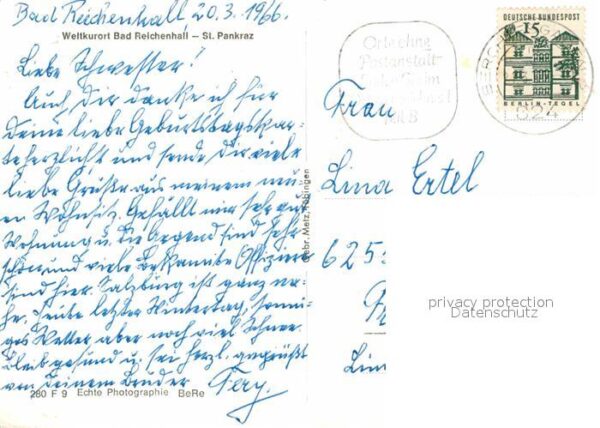 Bad Reichenhall, 20.3.1966.
Weltkurort Bad Reichenhall – St. Pankraz
Liebe Schwester!
Auch dir danke ich für
deine liebe Geburtstagskar-
te herzlichst und sende dir viele
liebe Grüße aus meinem neu-
en Wohnsitz. Gefällt mir sehr gut
Wohnung u. die Gegend sind sehr
schön und viele bekannte Offiziere
sind hier. Salzburg ist ganz na-
he. Heute letzter Wintertag, sonni-
ges Wetter aber noch viel Schnee.
Bleib gesund u. sei herzl. gegrüßt
von deinem Bruder
280 F 9 Echte Photographie BeRe
Gebr. Metz, Tübingen
Orte ohne
Postanstalt
DEUTSCHE BUNDESPOST
15
BERLIN-TEGEL
Frau
Lina Ertel
625
privacy protection
Datenschutz